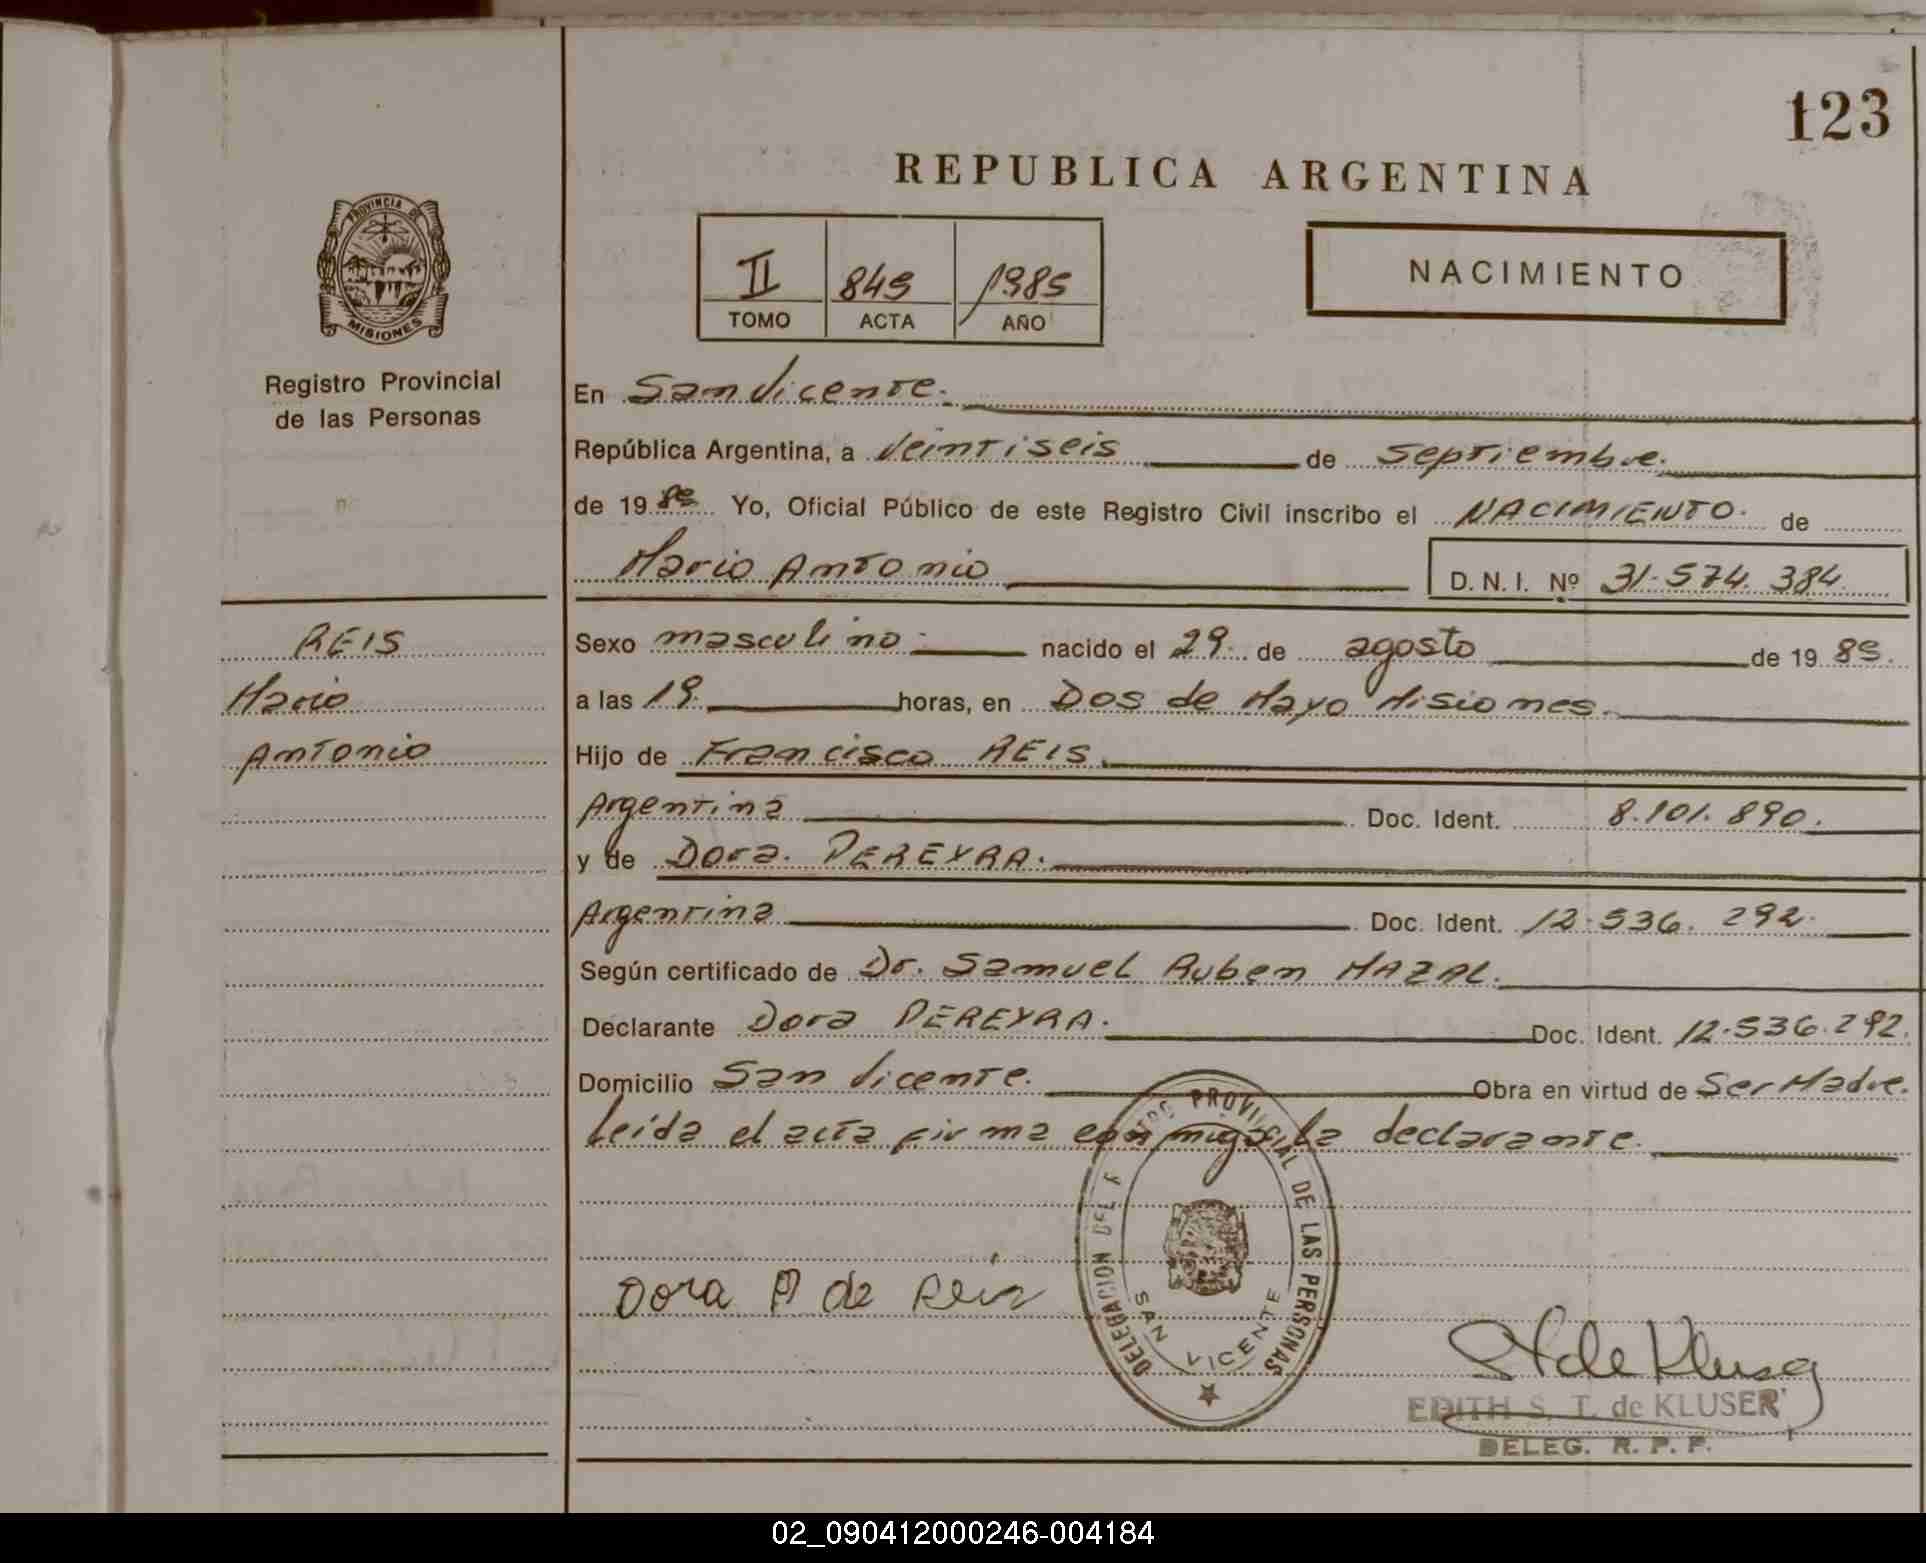 123
REPUBLICA ARGENTINA
PROVINCIA DE
MISIONES
Registro Provincial
de las Personas
II 849 1985
TOMO ACTA AÑO
NACIMIENTO
En San Vicente.
República Argentina, a Veintiseis de Septiembre.
de 19 85 Yo, Oficial Público de este Registro Civil inscribo el NACIMIENTO. de
Mario Antonio D. N. I. Nº 31.574.384
REIS
Mario
Antonio
Sexo masculino. nacido el 29. de agosto de 19 85.
a las 19. horas, en Dos de Mayo Misiones.
Hijo de Francisco REIS.
Argentina Doc. Ident. 8.101.890.
y de Dora. PEREYRA.
Argentina Doc. Ident. 12.536.292.
Según certificado de Dr. Samuel Ruben MAZAL.
Declarante Dora PEREYRA. Doc. Ident. 12.536.292.
Domicilio San Vicente. Obra en virtud de Ser Madre.
Leída el acta firma conmigo la declarante.
DELEGACION DEL PROVINCIAL DE LAS PERSONAS
SAN VICENTE
Dora P de Reis
EDITH S. T. de KLUSER
DELEG. R. P. P.
02_090412000246-004184